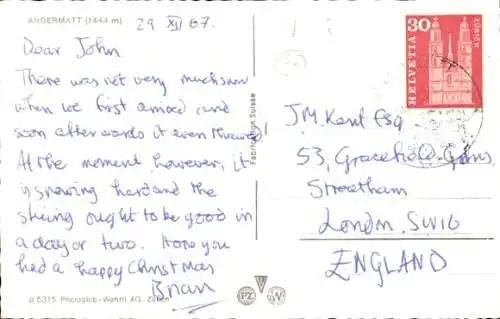 ANDERMATT (1444 m)
29 XII 67.
Dear John,
There was not very much snow
when we first arrived and
soon afterwards it even thawed
At the moment, however, it
is snowing hard and the
skiing ought to be good in
a day or two. Hope you
had a happy Christmas
Brian
p 5315 Photoglob-Wehrli AG, Zürich
Fabrication Suisse
PZ
W
30
HELVETIA
ZÜRICH
J.M. Kent Esq
53, Gracefield Gdns,
Streatham
London. SW16
ENGLAND